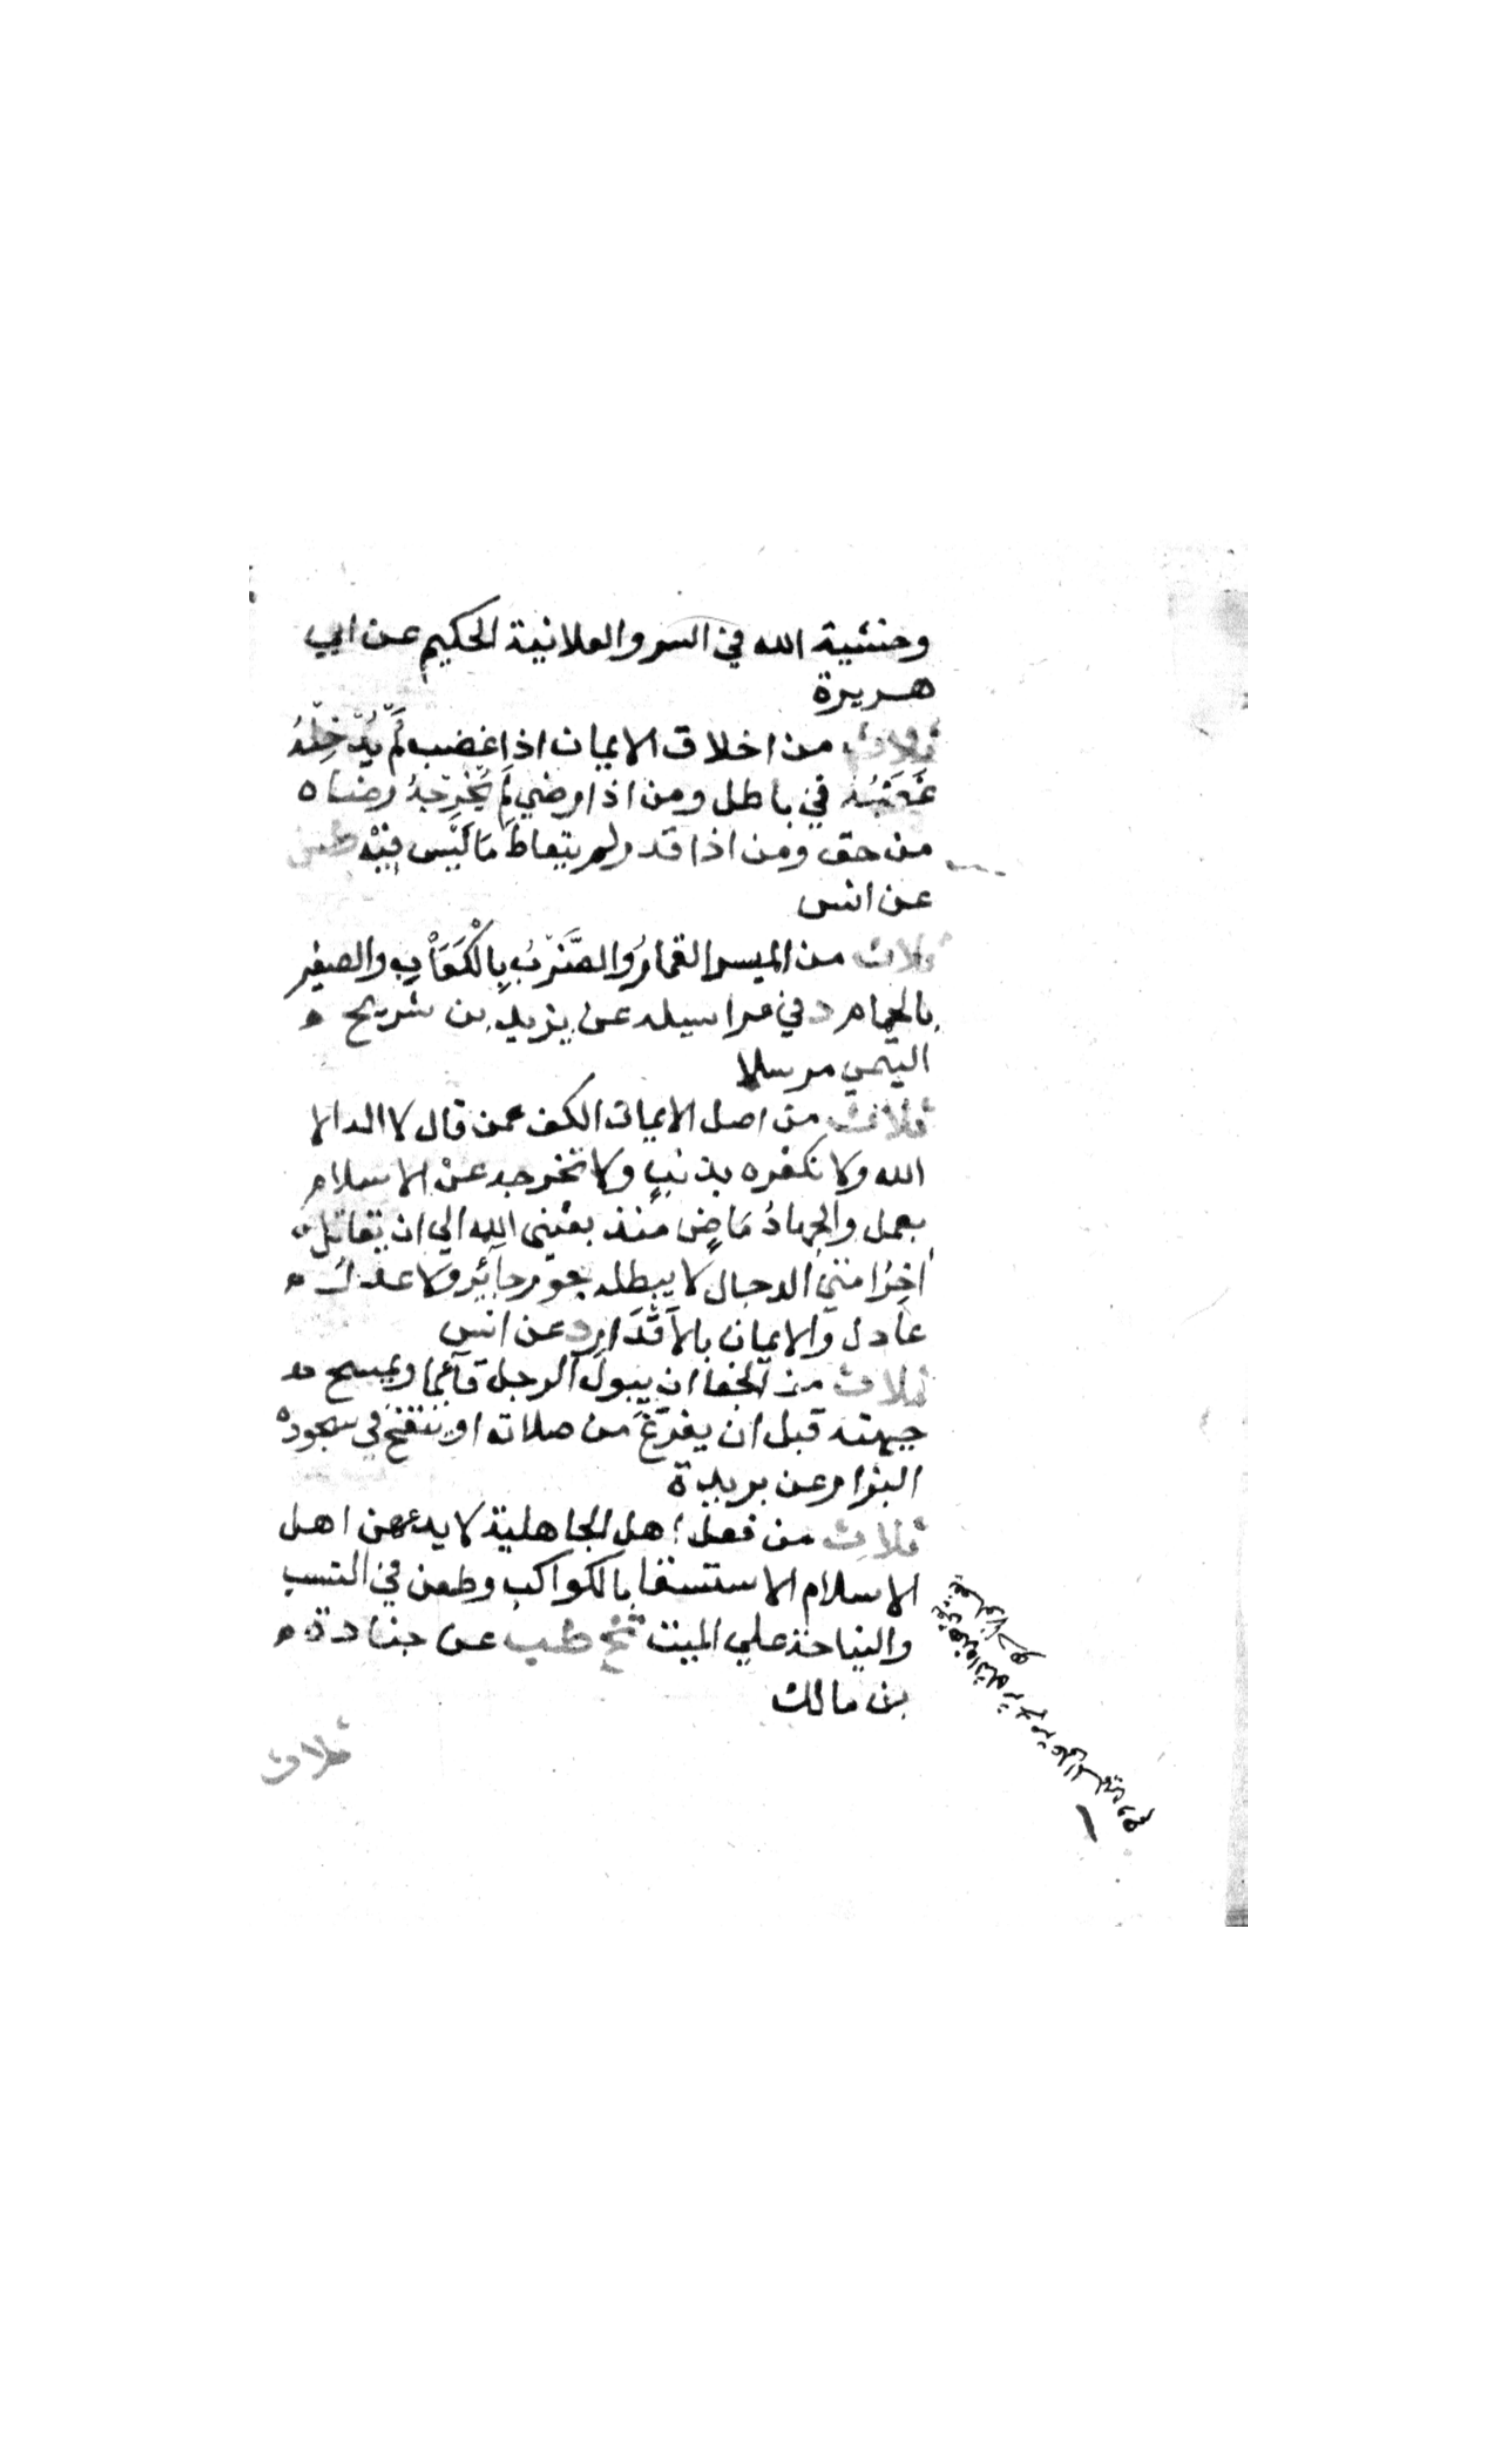 وخشية الله في السر والعلانية الحكيم عن ابي
هريرة
ثلاث من اخلاق الايمان اذا غضب لَمْ يُدْخِلْهُ
غَضَبُهُ في باطل ومن اذا رضي لَمْ يُخْرِجْهُ رضاه
من حق ومن اذا قدر لم يتعاط مَا لَيْسَ فِيْهِ طص
عن انس
ثلاث من الميسر القمارُ والضَّرْبُ بِالْكَعَاْبِ والصفير
بالحمام د في مراسيله عن يزيد بن شريح ه
التيمي مرسلا
ثلاث من اصل الايمان الكف عمن قال لا اله الا
الله ولا نكفره بذنبٍ ولا نخرجه عنْ الاسلام
بعمل والجهادُ مَاضٍ منذ بعثني الله الي ان يقاتل
اخِرُ امتي الدجال لا يبطله جور جائر ولا عدل ه
عادل والايمان بالاَقْدَارِ د عن انس
ثلاث من الجفا ان يبول الرجل قآئما ويمسح
جبهته قبل ان يفرغ من صلاته او ينفخ في سجوده
البزار عن بريدة
ثلاث من فعل اهل الجاهلية لا يدعهن اهل
الاسلام الاستسقا بالكواكب وطعن في النسب
والنياحة علي الميت تخ طب عن جنادة ه
بن مالك
ثلاث
١